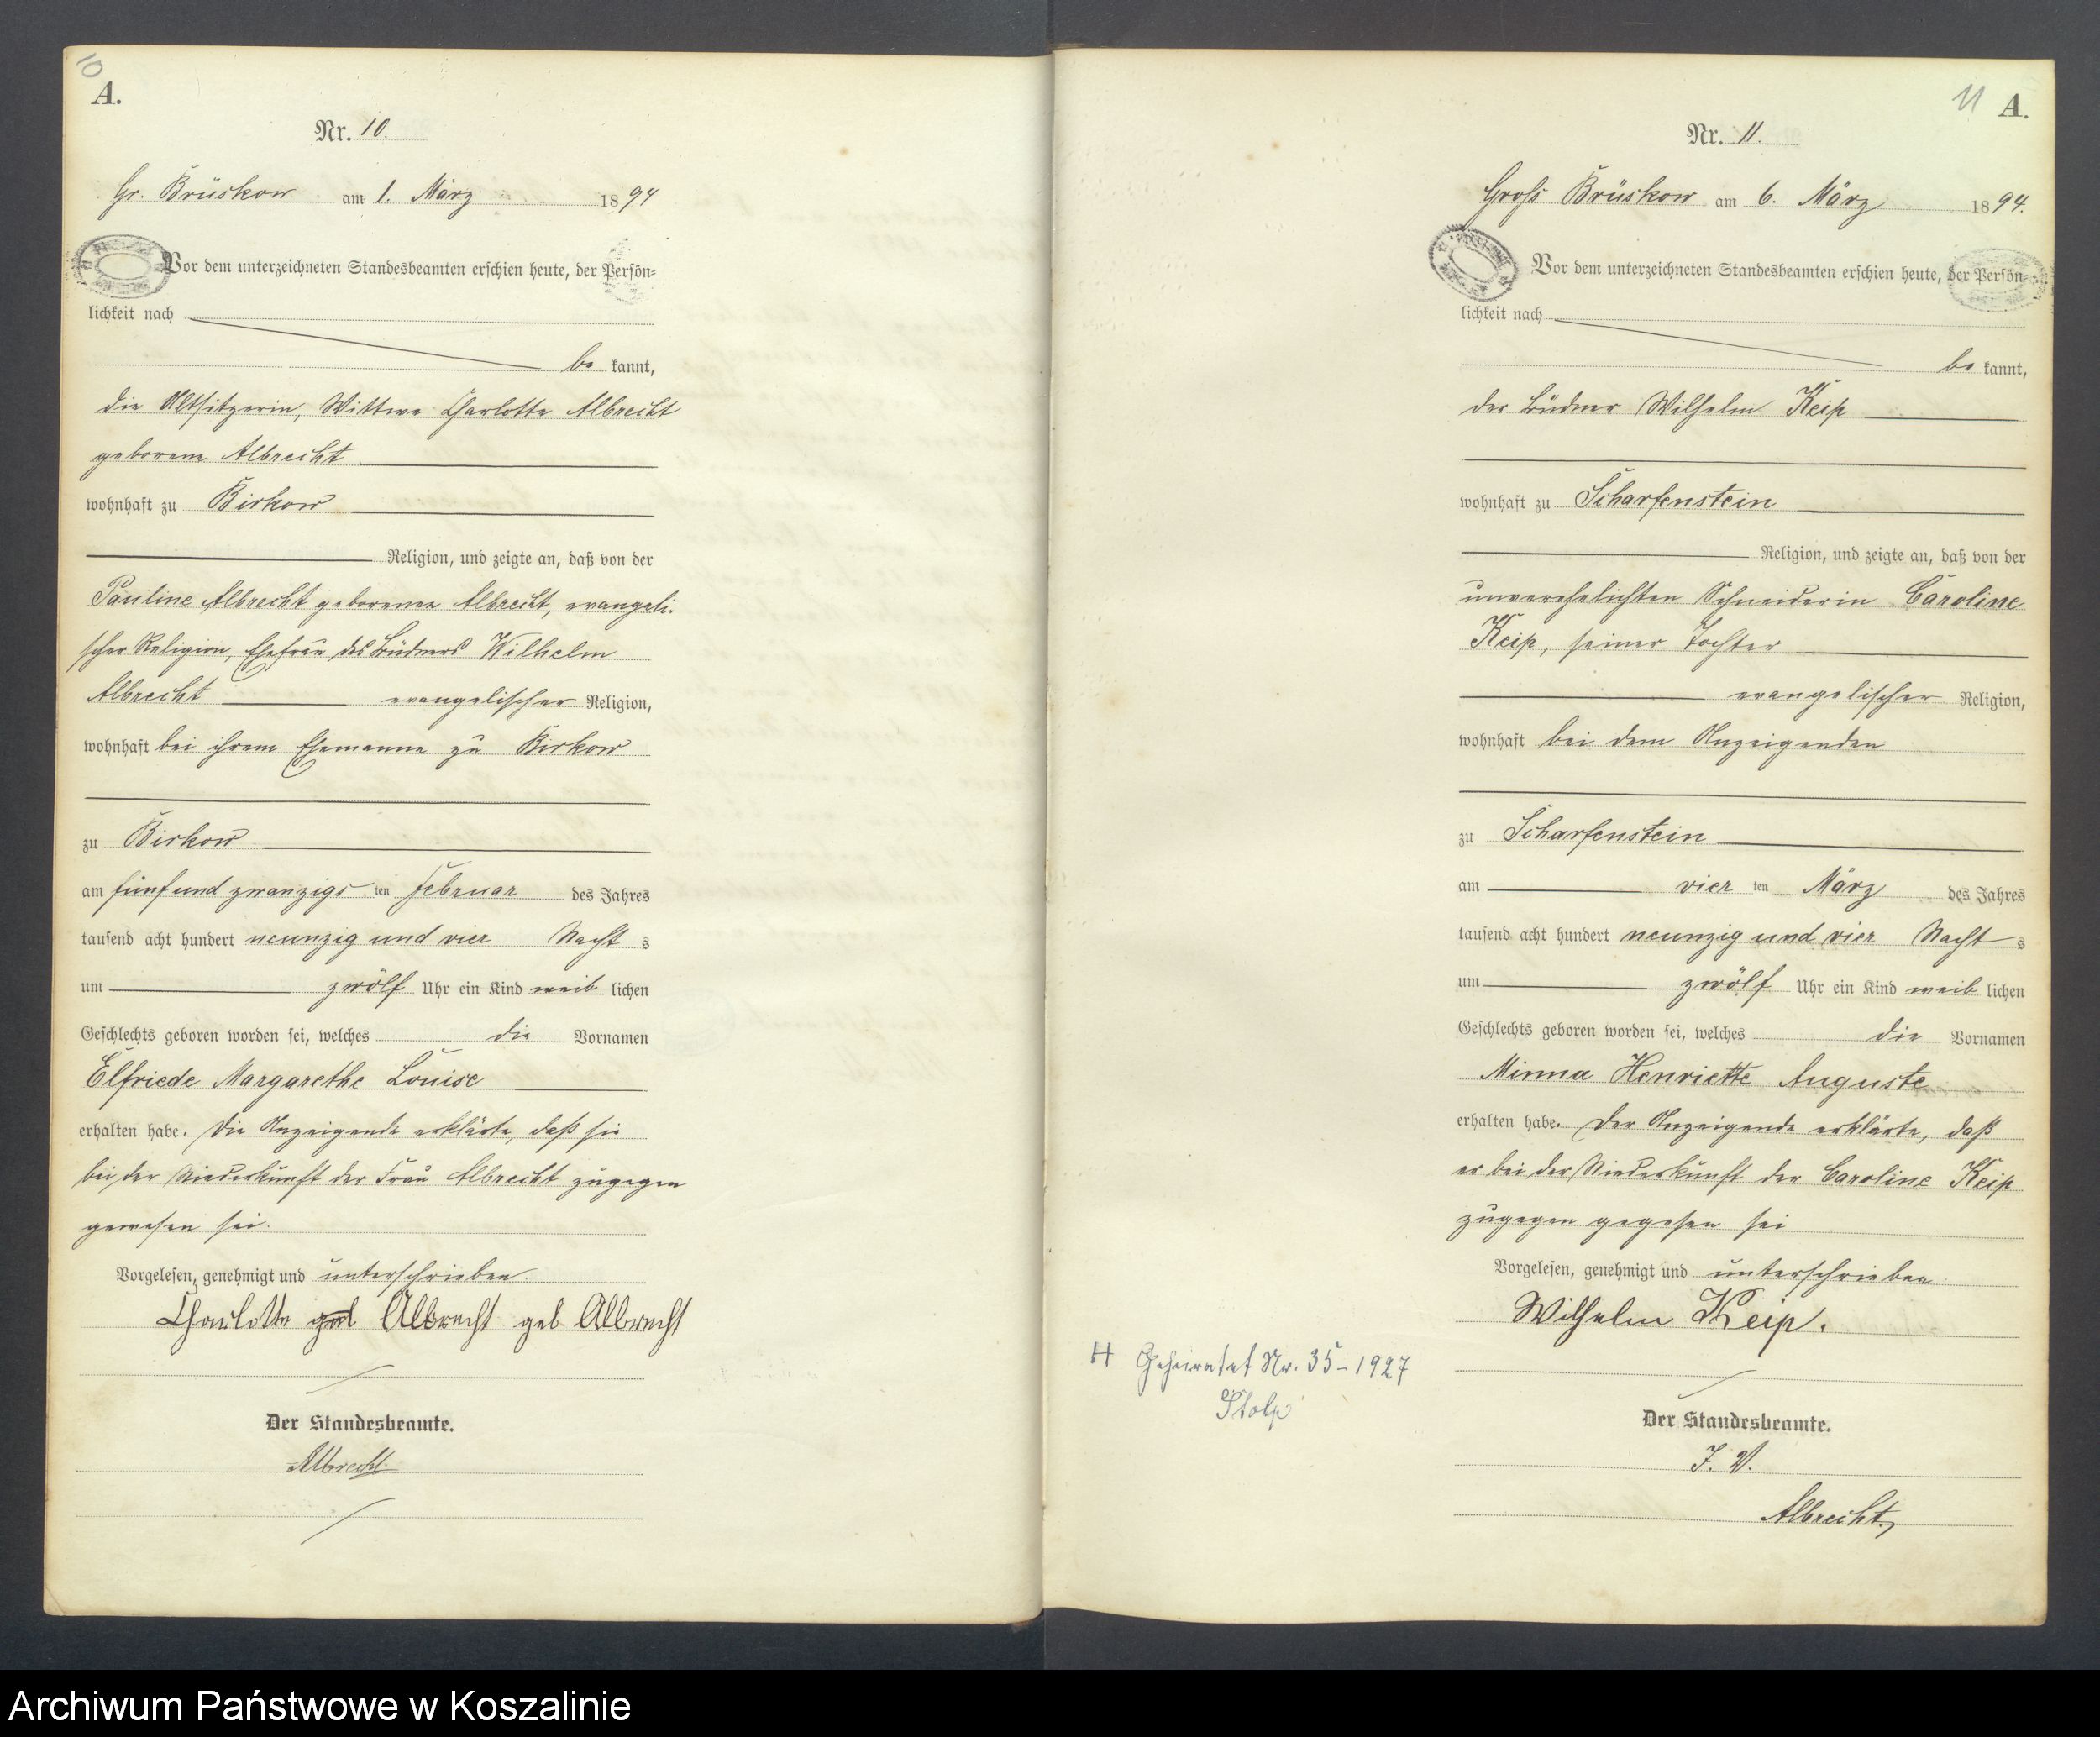 10
A.
Nr. 10.
Gr. Brüskow am 1. März 1894
Vor dem unterzeichneten Standesbeamten erschien heute, der Persön-
lichkeit nach
be kannt,
die Altsitzerin, Wittwe Charlotte Albrecht
geborene Albrecht
wohnhaft zu Birkow
Religion, und zeigte an, daß von der
Pauline Albrecht geborenen Albrecht, evangeli-
scher Religion, Ehefrau des Büdners Wilhelm
Albrecht evangelischer Religion,
wohnhaft bei ihrem Ehemanne zu Birkow
zu Birkow
am fünf und zwanzigs ten Februar des Jahres
tausend acht hundert neunzig und vier Nacht s
um zwölf Uhr ein Kind weib lichen
Geschlechts geboren worden sei, welches die Vornamen
Elfriede Margarethe Louise
erhalten habe. Die Anzeigende erklärte, daß sie
bei der Niederkunft der Frau Albrecht zugegen
gewesen sei.
Vorgelesen, genehmigt und unterschrieben.
Charlotte geb Albrecht geb Albrecht
Der Standesbeamte.
Albrecht
11 A.
Nr. 11.
Groß Brüskow am 6. März 1894.
Vor dem unterzeichneten Standesbeamten erschien heute, der Persön-
lichkeit nach
be kannt,
der Büdner Wilhelm Keip
wohnhaft zu Scharfenstein
Religion, und zeigte an, daß von der
unverehelichten Schneiderin Caroline
Keip, seiner Tochter
evangelischer Religion,
wohnhaft bei dem Anzeigenden
zu Scharfenstein
am vier ten März des Jahres
tausend acht hundert neunzig und vier Nacht s
um zwölf Uhr ein Kind weib lichen
Geschlechts geboren worden sei, welches die Vornamen
Minna Henriette Auguste
erhalten habe. Der Anzeigende erklärte, daß
er bei der Niederkunft der Caroline Keip
zugegen gegesen sei
Vorgelesen, genehmigt und unterschrieben
Wilhelm Keip.
H Geheiratet Nr. 35-1927
Stolp
Der Standesbeamte.
J. V.
Albrecht
Archiwum Państwowe w Koszalinie